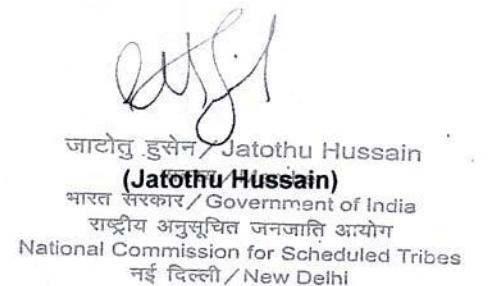 जाटोतु हुसेन / Jatothu Hussain
(Jatothu Hussain)
भारत सरकार / Government of India
राष्ट्रीय अनुसूचित जनजाति आयोग
National Commission for Scheduled Tribes
नई दिल्ली / New Delhi